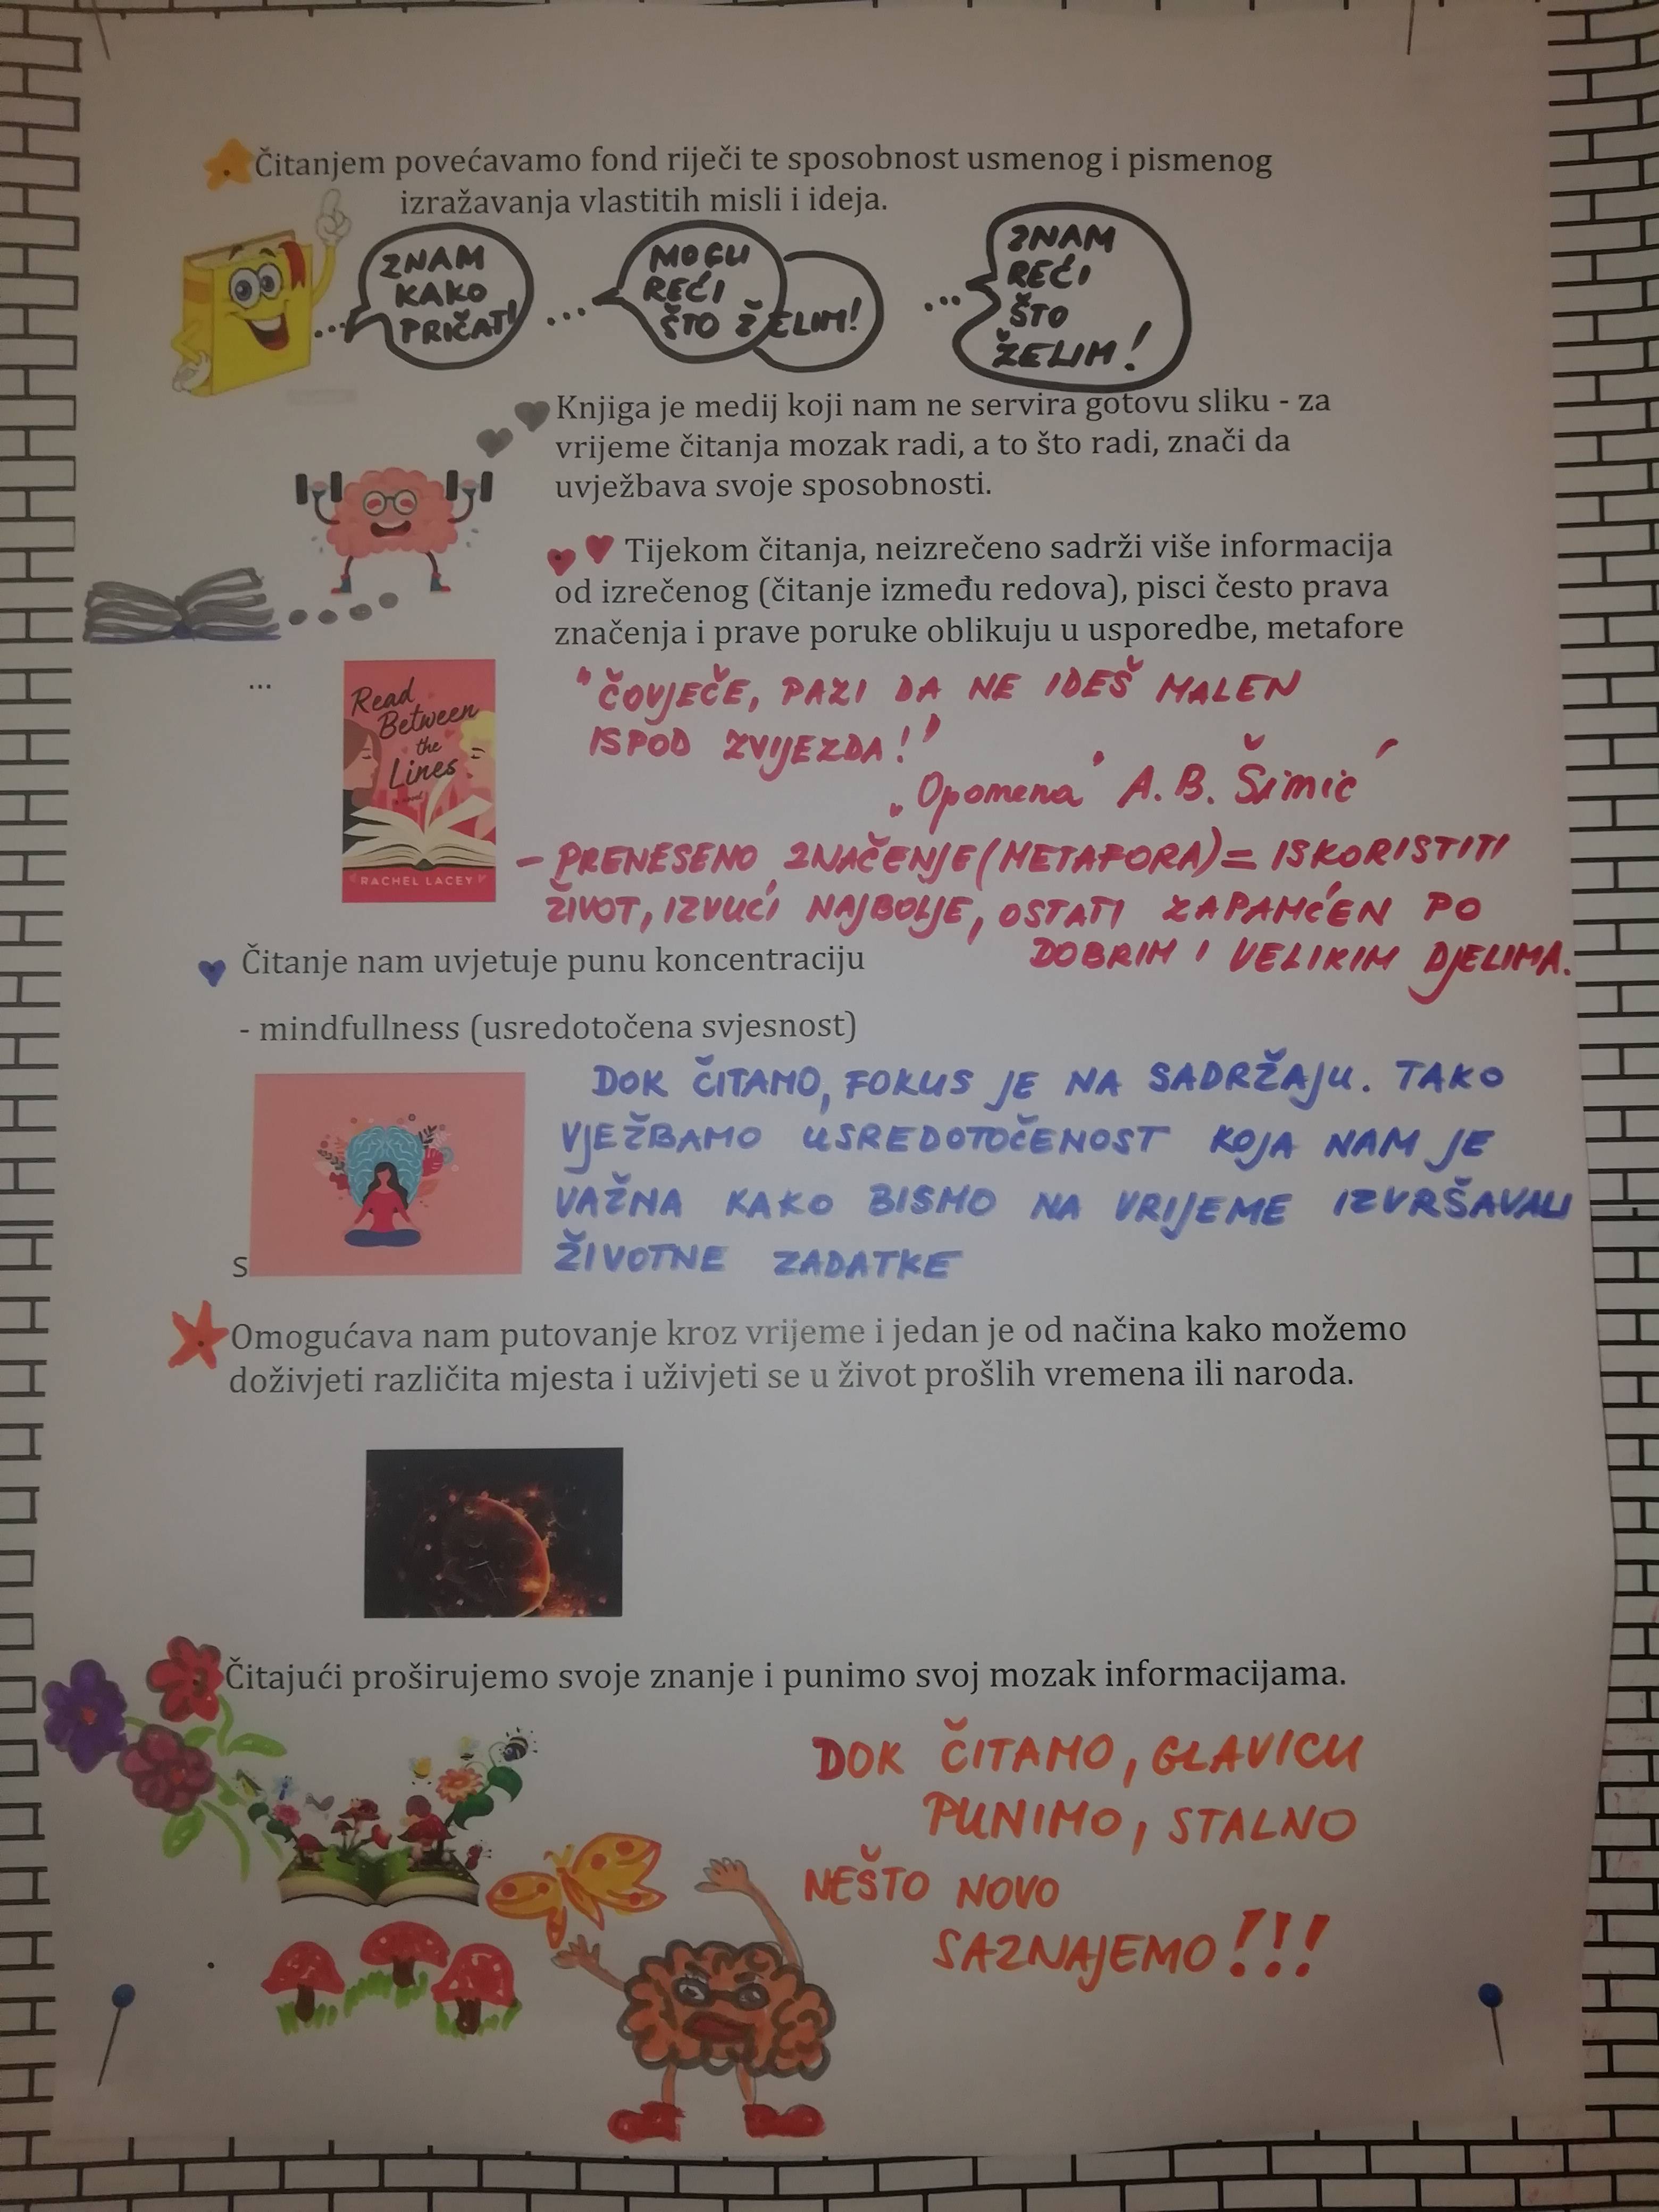 Čitanjem povećavamo fond riječi te sposobnost usmenog i pismenog
izražavanja vlastitih misli i ideja.
ZNAM
KAKO
PRIČATI
...
MOGU
REĆI
ŠTO ŽELIM!
...
ZNAM
REĆI
ŠTO
ŽELIM!
Knjiga je medij koji nam ne servira gotovu sliku - za
vrijeme čitanja mozak radi, a to što radi, znači da
uvježbava svoje sposobnosti.
Tijekom čitanja, neizrečeno sadrži više informacija
od izrečenog (čitanje između redova), pisci često prava
značenja i prave poruke oblikuju u usporedbe, metafore
...
Read
Between
the
Lines
RACHEL LACEY
"ČOVJEČE, PAZI DA NE IDEŠ MALEN
ISPOD ZVIJEZDA!"
„Opomena" A. B. Šimić
- PRENESENO ZNAČENJE (METAFORA) = ISKORISTITI
ŽIVOT, IZVUĆI NAJBOLJE, OSTATI ZAPAMĆEN PO
DOBRIM I VELIKIM DJELIMA.
Čitanje nam uvjetuje punu koncentraciju
- mindfullness (usredotočena svjesnost)
DOK ČITAMO, FOKUS JE NA SADRŽAJU. TAKO
VJEŽBAMO USREDOTOČENOST KOJA NAM JE
VAŽNA KAKO BISMO NA VRIJEME IZVRŠAVALI
ŽIVOTNE ZADATKE
s
Omogućava nam putovanje kroz vrijeme i jedan je od načina kako možemo
doživjeti različita mjesta i uživjeti se u život prošlih vremena ili naroda.
Čitajući proširujemo svoje znanje i punimo svoj mozak informacijama.
DOK ČITAMO, GLAVICU
PUNIMO, STALNO
NEŠTO NOVO
SAZNAJEMO!!!